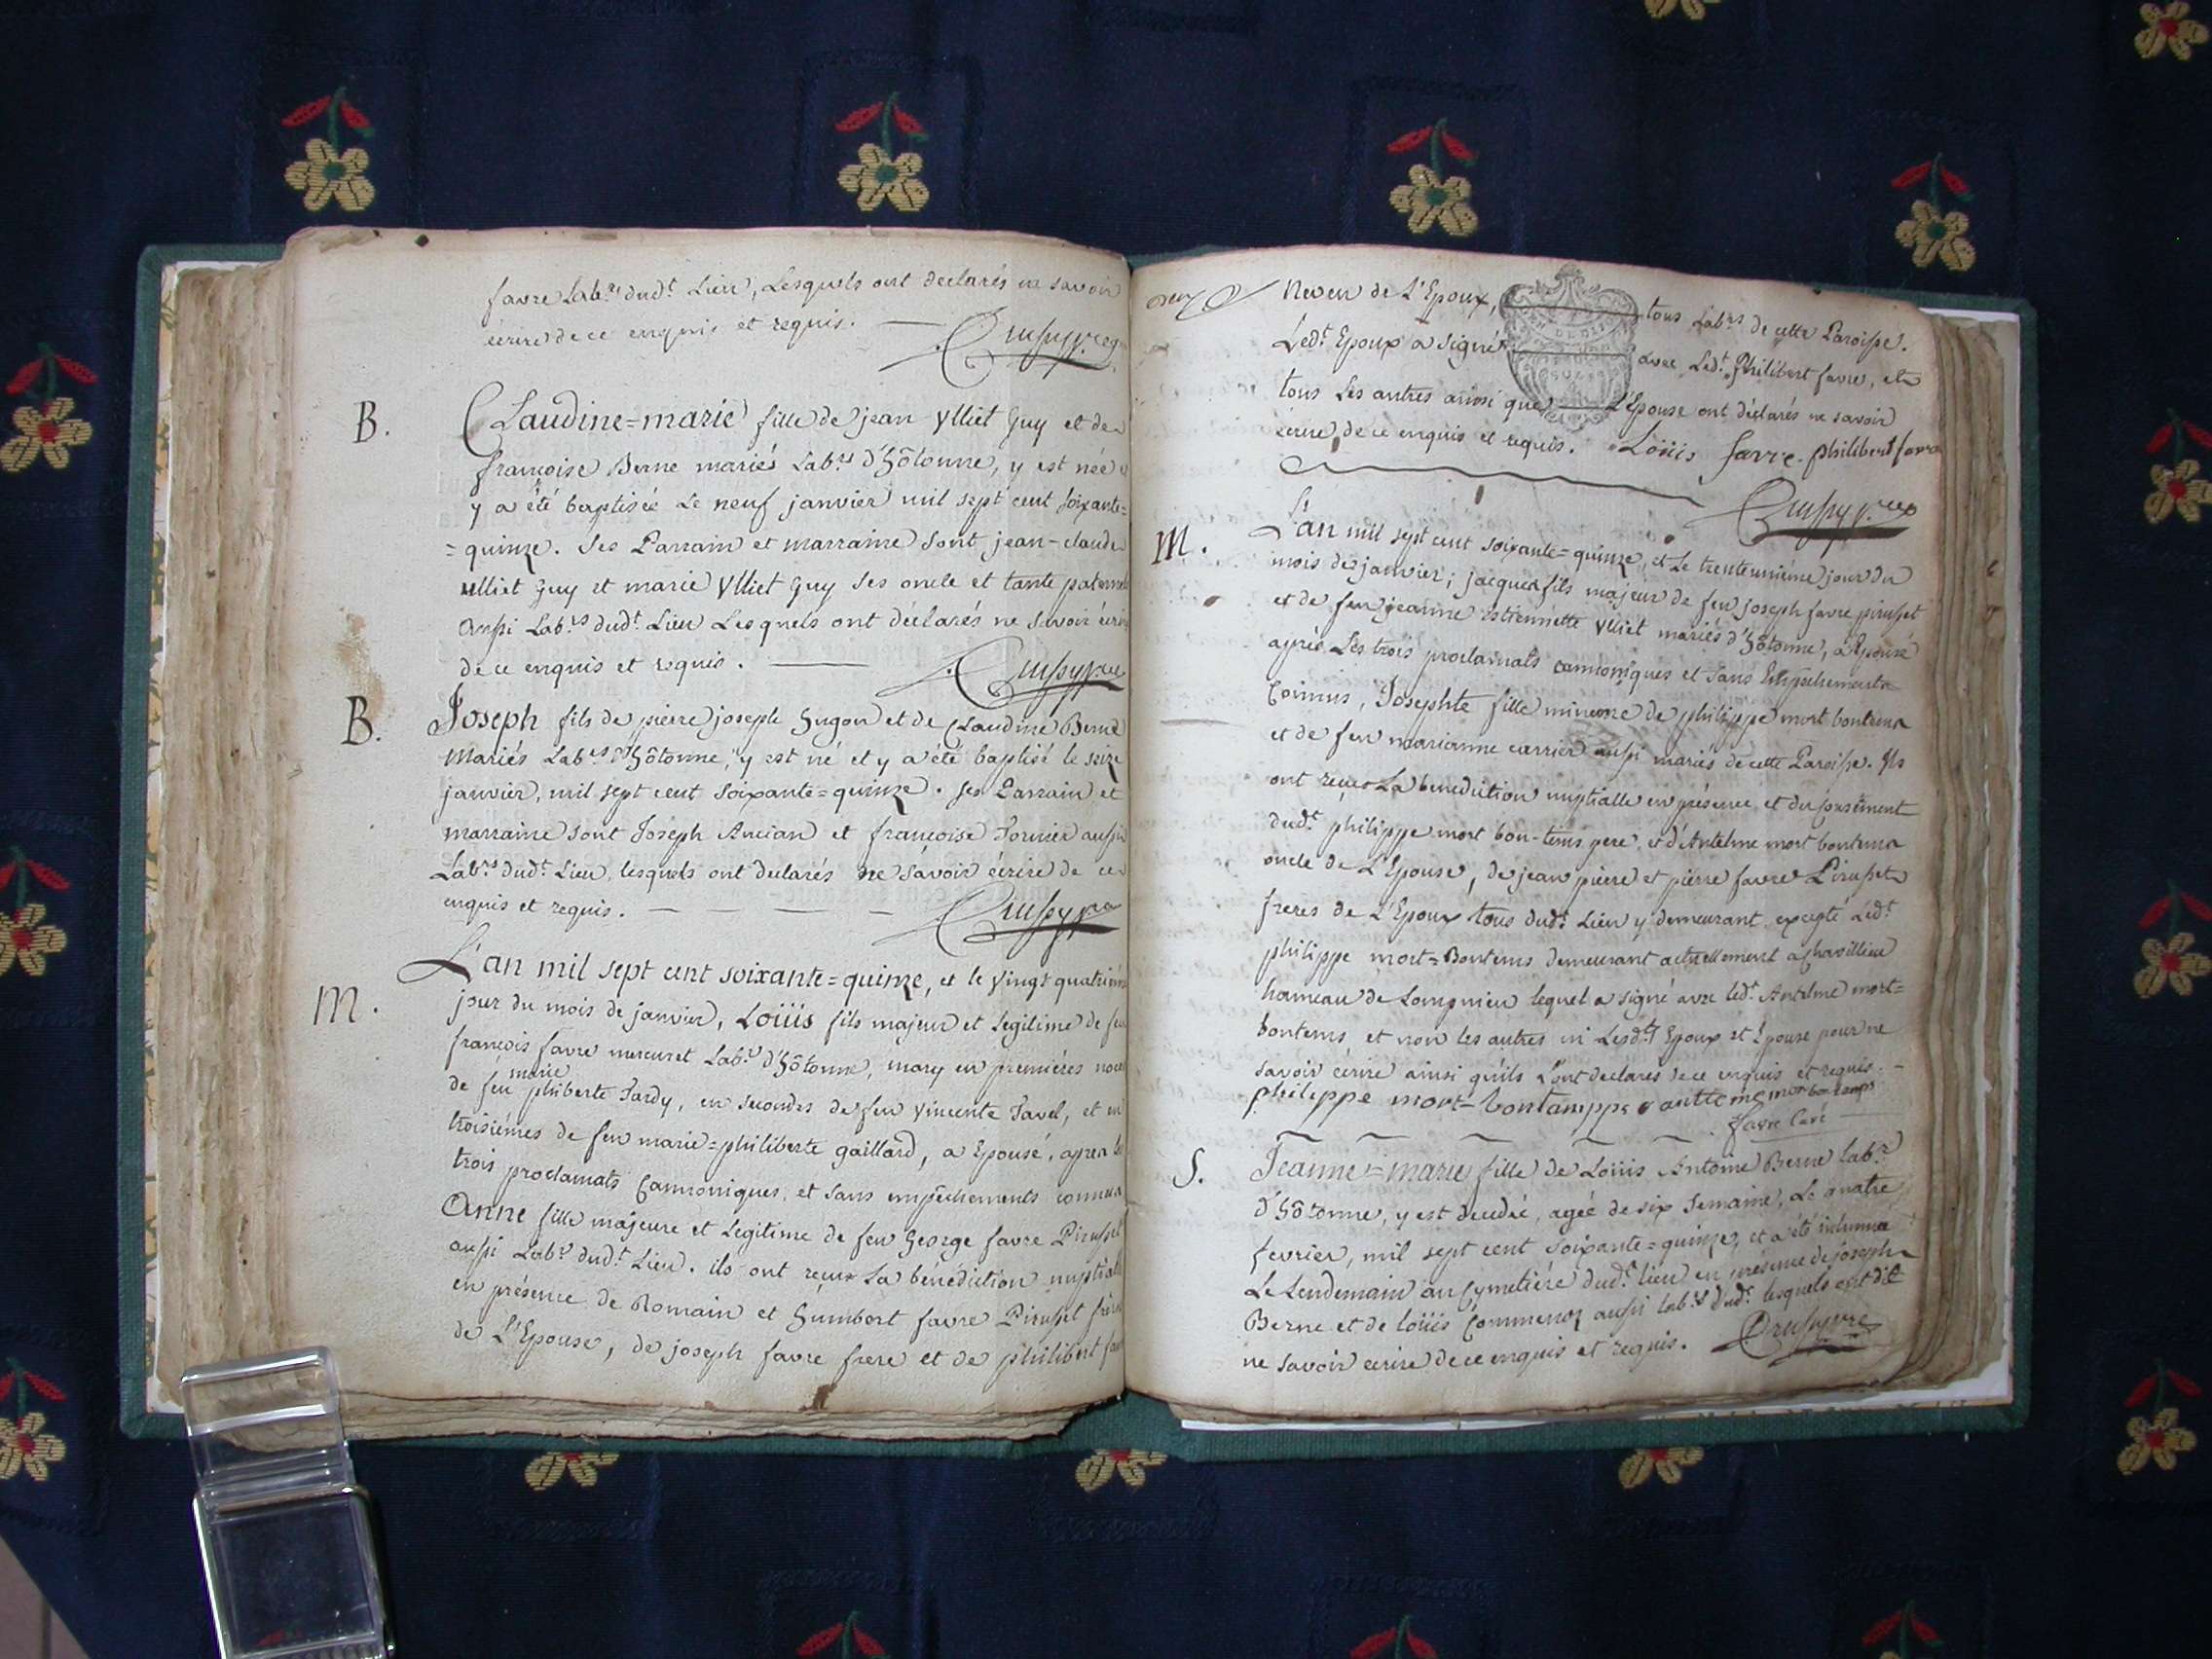 favre Lab.rs dud.t Lieu, Lesquels ont declarés ne savoir
écrire de ce enquis et requis.
B.
Claudine=marie fille de jean ylliet Guy et de
françoise Berne mariés Lab.rs d'hôtonne, y est née
y a été baptisée Le neuf janvier mil sept cent soixante=
=quinze. ses Parrain et marraine sont jean-claude
ulliet Guy et marie ylliet Guy ses oncle et tante paternel
aussi Lab.rs dud.t Lieu Lesquels ont déclarés ne savoir écrire
de ce enquis et requis.
B.
Joseph fils de pierre joseph hugon et de Claudine Berne
Mariés Lab.rs d'hôtonne, y est né et y a été baptisé le seize
janvier, mil sept cent soixante=quinze. ses Parrain et
marraine sont Joseph Ancian et françoise Fornier aussi
Lab.rs dud.t Lieu, lesquels ont declarés ne savoir écrire de ce
enquis et requis.
M.
L'an mil sept cent soixante=quinze, et le vingt quatrième
jour du mois de janvier, Loüis fils majeur et Legitime de feu
françois favre mercuret Lab.r d'hôtonne, mary en premiéres noces
de feu marie philiberte Tardy, en secondes de feu vincente Tavel, et en
troisiémes de feu marie=philiberte gaillard, a Epousé, apres les
trois proclamats Cannoniques, et sans empêchements connus
Anne fille majeure et Legitime de feu George favre Pirusset
aussi Lab.r dud.t Lieu. ils ont reçus La bénédiction nuptiale
en présence de Romain et humbert favre Pirusset frères
de L'Epouse, de joseph favre frere et de philibert favre
Neveu de L'Epoux, tous Lab.rs de cette Paroisse.
Led.t Epoux a signé avec Led.t Philibert favre, et
tous Les autres ainsi que L'Epouse ont déclarés ne savoir
écrire, de ce enquis et requis. Loüis favre. philibert favre
M.
L'an mil sept cent soixante=quinze, et Le trenteuniéme jour du
mois de janvier; jacques fils majeur de feu joseph favre pirusset
et de feu jeanne estiennette ylliet mariés d'hôtonne, a Epousé
après Les trois proclamats cannoniques et sans Empêchements
Connus, Josephte fille mineure de philippe mort bontems
et de feu marianne carrier aussi mariés de cette Paroisse. Ils
ont reçus La benediction nuptialle en présence et du consentement
dud.t philippe mort bon-tems pere, et d'Antelme mort bontems
oncle de L'Epouse, de jean pierre et pierre favre Pirusset
freres de L'Epoux tous dud.t Lieu y demeurant, excepté Led.t
philippe mort=Bontems demeurant actuellement a chavillieu
hameau de Lompnieu lequel a signé avec led.t Antelme mort=
bontems, et non les autres ni Lesd.ts Epoux et Epouse pour ne
savoir écrire ainsi qu'ils L'ont declarés de ce enquis et requis.
philippe mort-bontampps antteme mor bontamps
favre Curé
S.
Jeanne=marie fille de Loüis Antoine Berne Lab.r
d'hôtonne, y est decedée, agée de six semaine, Le quatre
fevrier, mil sept cent soixante=quinze, et a été inhumée
Le Lendemain au Cymetiére dud.t lieu en présence de joseph
Berne et de loüis Commenoz aussi lab.rs dud.t lesquels ont dit
ne savoir ecrire de ce enquis et requis.